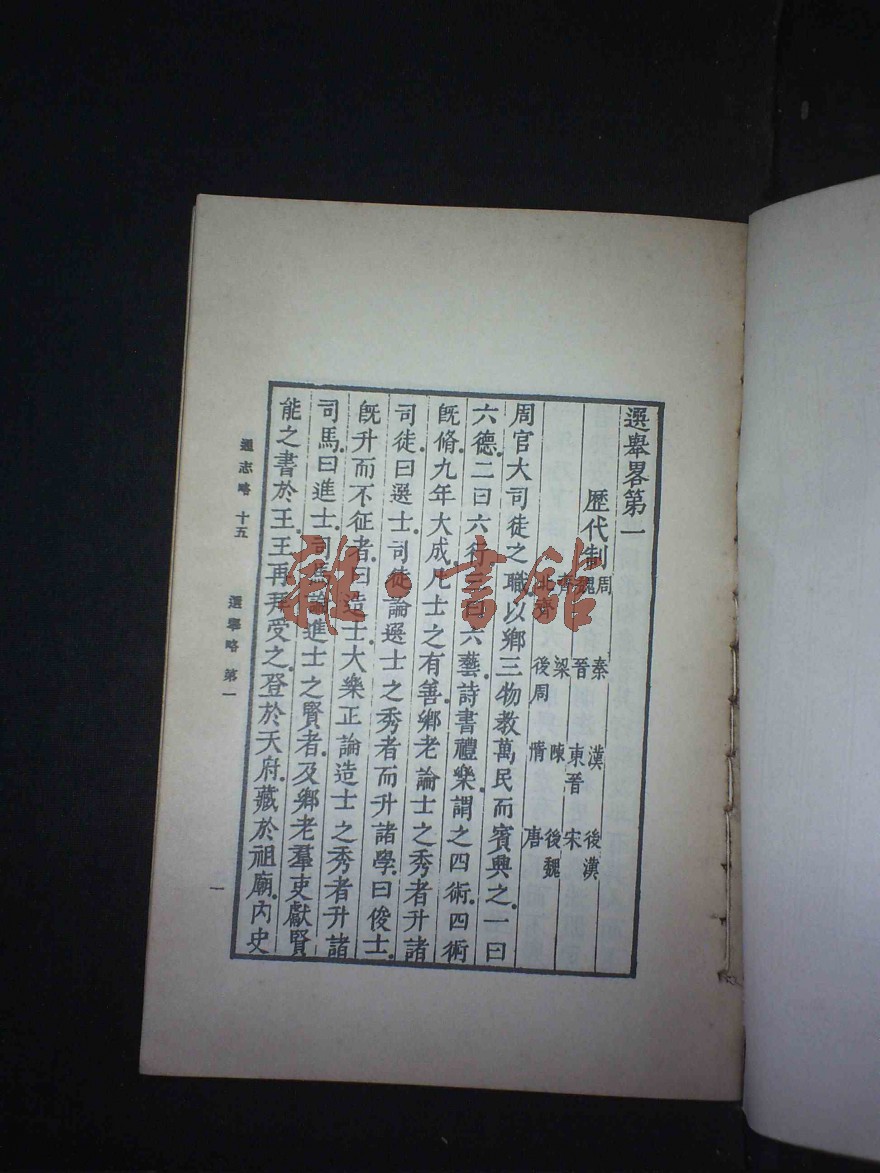 選舉畧第一
歷代制
周 秦 漢 後漢
魏 晉 東晉 宋
齊 梁 陳 後魏
北齊 後周 隋 唐
周官大司徒之職以鄉三物教萬民而賓興之一曰
六德二曰六行三曰六藝詩書禮樂謂之四術四術
旣脩九年大成凡士之有善鄉老論士之秀者升諸
司徒曰選士司徒論選士之秀者而升諸學曰俊士
旣升而不征者曰造士大樂正論造士之秀者升諸
司馬曰進士司馬論進士之賢者及鄉老羣吏獻賢
能之書於王王再拜受之登於天府藏於祖廟內史
通志略 十五 選舉略 第一
一
雜·書館